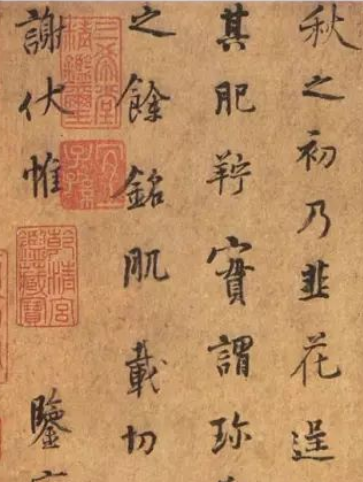 秋之初乃韭花逞
其肥羜實謂珍
之餘銘肌載切
謝伏惟 鑒
三希堂
精鑑璽
宜
子孫
乾清宮
鑑藏寶